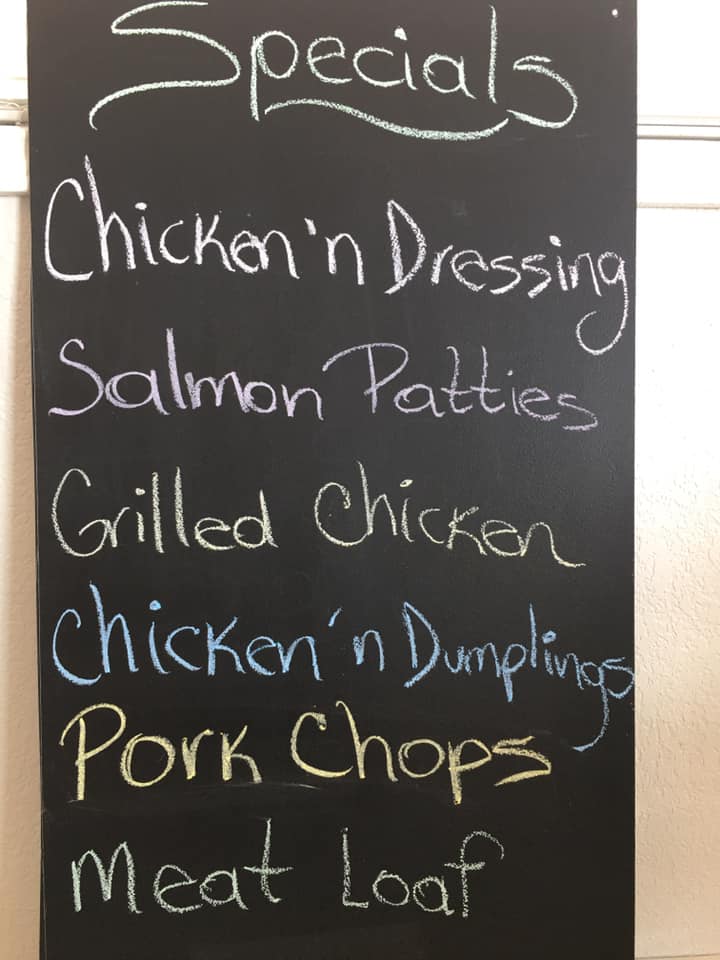 Specials
Chicken 'n Dressing
Salmon Patties
Grilled Chicken
Chicken 'n Dumplings
Pork Chops
Meat Loaf